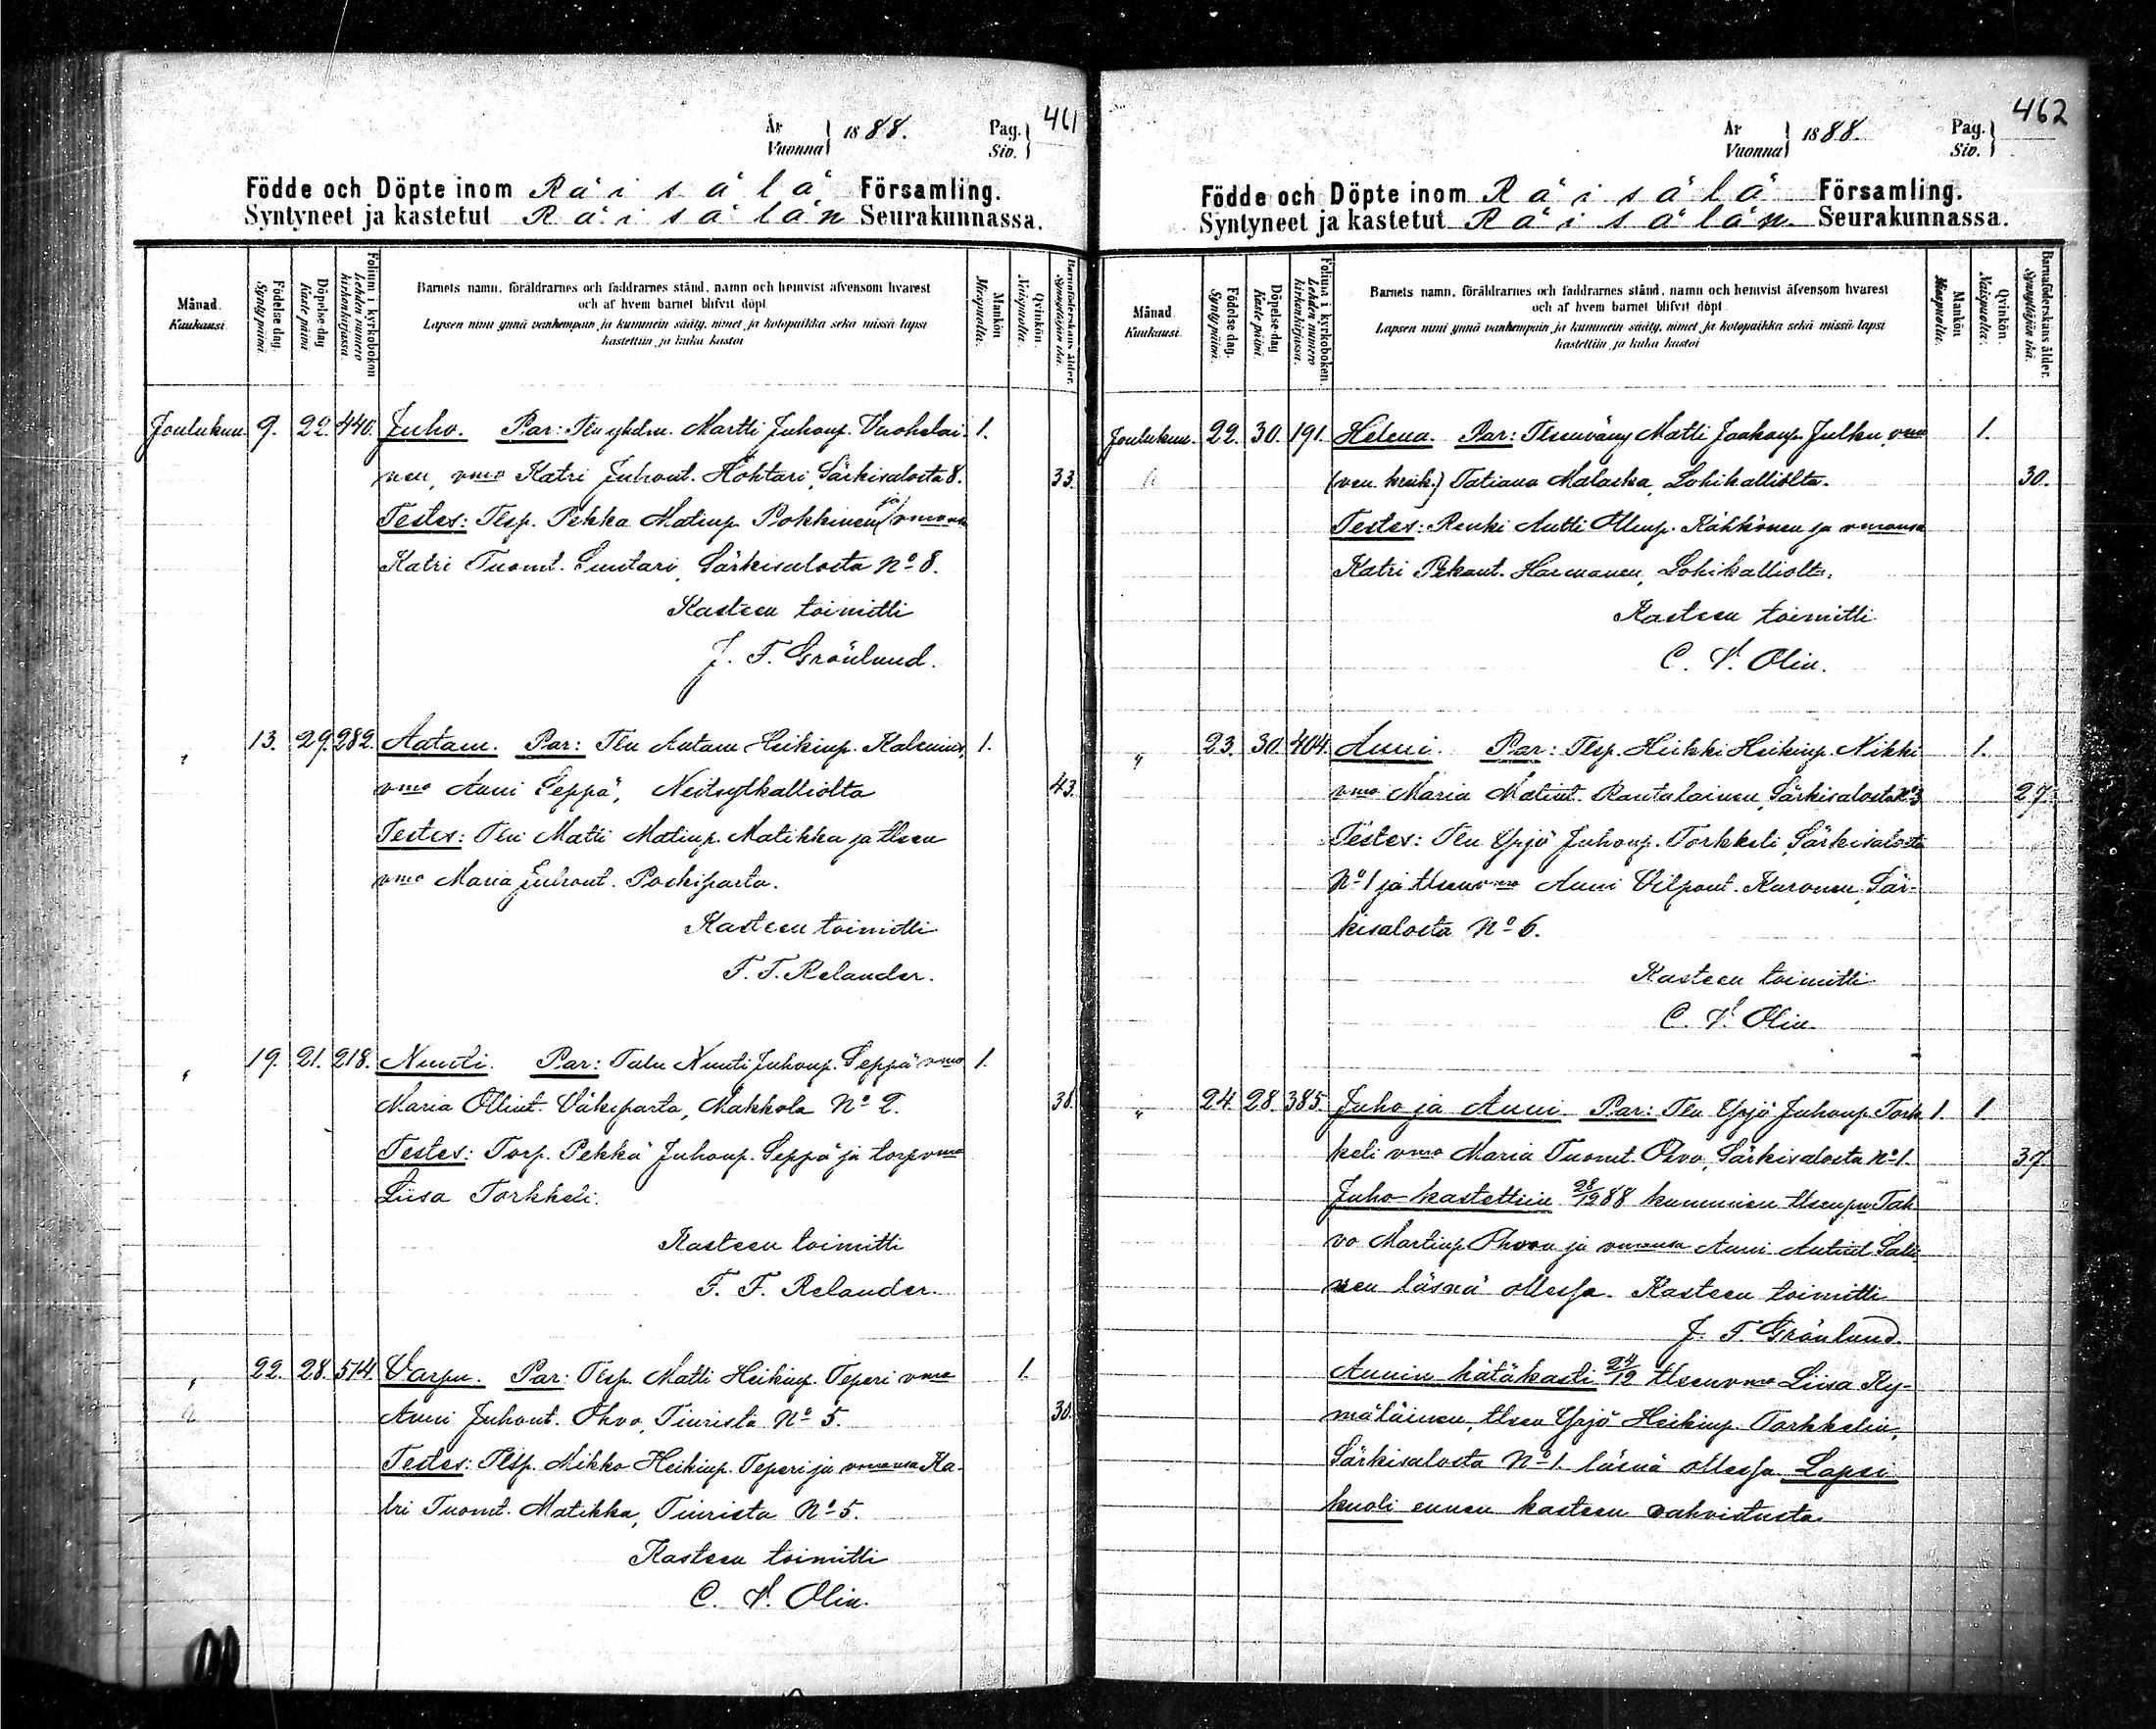 461
År
Vuonna } 1888.
Pag.
Siv. }
Födde och Döpte inom Räisälä Församling.
Syntyneet ja kastetut Räisälän Seurakunnassa.
Månad. Kuukausi.
Födelse dag. Synty päivä.
Döpelse-dag Kaste päivä
Folium i kyrkoboken Lehden numero kirkonkirjassa.
Barnets namn, föräldrarnes och faddrarnes stånd, namn och hemvist äfvensom hvarest
och af hvem barnet blifvit döpt
Lapsen nimi ynnä vanhempain ja kummein sääty, nimet ja kotopaikka sekä missä lapsi
kastettiin ja kuka kastoi
Mankön Miespuolia.
Qvinkön. Naispuolia.
Barnaföderskans ålder. Synnyttäjän ikä.
Joulukuu 9. 22. 440. Juho. Par: Tln yhdm. Martti Juhonp. Vuohelai 1.
nen, vmo Katri Juhont. Hohtari, Särkisalosta 8. 33.
Testes: Tlsp. Pekka Matinp. Pokkinen ja vmonsa
Katri Tuomt. Suntari, Särkisalosta No 8.
Kasteen toimitti
J. F. Grönlund.
" 13. 29. 282. Aatam. Par: Tln Aatam Heikinp. Kaleniu, 1.
vmo Anni Seppä, Neitsytkalliolta 43.
Testes: Tln Matti Matinp. Matikka ja tlsen
vmo Maria Juhont. Poskiparta.
Kasteen toimitti
F. F. Relander.
" 19. 21. 218. Nuuti. Par: Talu Nuuti Juhonp. Seppä vmo 1.
Maria Ollint. Väkiparta, Makkola No 2. 38.
Testes: Torp. Pekka Juhonp. Seppä ja torpvmo
Liisa Torkkeli.
Kasteen toimitti
F. F. Relander.
" 22. 28. 514. Varpu. Par: Tlsp. Matti Heikinp. Teperi vmo 1.
Anni Juhont. Ohvo, Tiurista No 5. 30.
Testes: Tlsp. Mikko Heikinp. Teperi ja vmonsa Ka-
tri Tuomt. Matikka, Tiurista No 5.
Kasteen toimitti
C. V. Olin.
462
År
Vuonna } 1888.
Pag.
Siv. }
Födde och Döpte inom Räisälä Församling.
Syntyneet ja kastetut Räisälän Seurakunnassa.
Månad. Kuukausi.
Födelse-dag. Synty päivä.
Döpelse-dag Kaste päivä.
Folium i kyrkoboken. Lehden numero kirkonkirjassa.
Barnets namn, föräldrarnes och faddrarnes stånd, namn och hemvist äfvensom hvarest
och af hvem barnet blifvit döpt
Lapsen nimi ynnä vanhempain ja kummein sääty, nimet ja kotopaikka sekä missä lapsi
kastettiin ja kuka kastoi
Mankön Miespuolia.
Qvinkön. Naispuolia.
Barnaföderskans ålder. Synnyttäjän ikä.
Joulukuu. 22. 30. 191. Helena. Par: Tlsenvävy Matti Jaakonp. Julku, vmo 1.
(ven. kreik.) Tatiana Malaska, Lohikalliolta. 30.
Testes: Renki Antti Ollinp. Kähkönen ja vmonsa
Katri Pekant. Harmanen, Lohikalliolta.
Kasteen toimitti
C. V. Olin.
" 23. 30. 404. Anni. Par: Tlsp. Heikki Heikinp. Nikki 1.
vmo Maria Matint. Rantalainen, Särkisalosta No 3 27.
Testes: Tln Yrjö Juhonp. Torkkeli, Särkisalosta
No 1 ja tlsenvmo Anni Vilpont. Kuronen, Sär-
kisalosta No 6.
Kasteen toimitti
C. V. Olin.
" 24. 28. 385. Juho ja Anni. Par: Tln Yrjö Juhonp. Tork 1. 1
keli vmo Maria Tuomt. Ohvo, Särkisalosta No 1. 37.
Juho kastettiin 28/12 88 kummien tlsenpn Tah
vo Martinp. Ohvon ja vmonsa Anni Antint. Sali
nen läsnä ollessa. Kasteen toimitti
J. F. Grönlund.
Annin hätäkasti 24/12 tlsenvmo Liisa Ky-
mäläinen, tlsen Yrjö Heikinp. Torkkelin,
Särkisalosta No 1. läsnä ollessa. Lapsi
kuoli ennen kasteen vahvistusta.